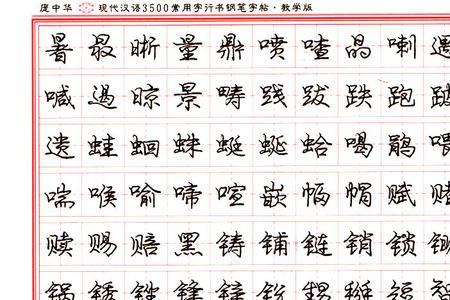 庞中华 现代汉语3500常用字行书钢笔字帖·教学版
暑最晰量鼎喷喳晶喇遇
喊遏晾景畴践跋跌跑
遗蛙蛔蛛蜓蜒蛤喝鹃喂
喘喉喻啼喧嵌幅帽赋赌
赎赐赔黑铸铺链销锁
锅锈锋锌智